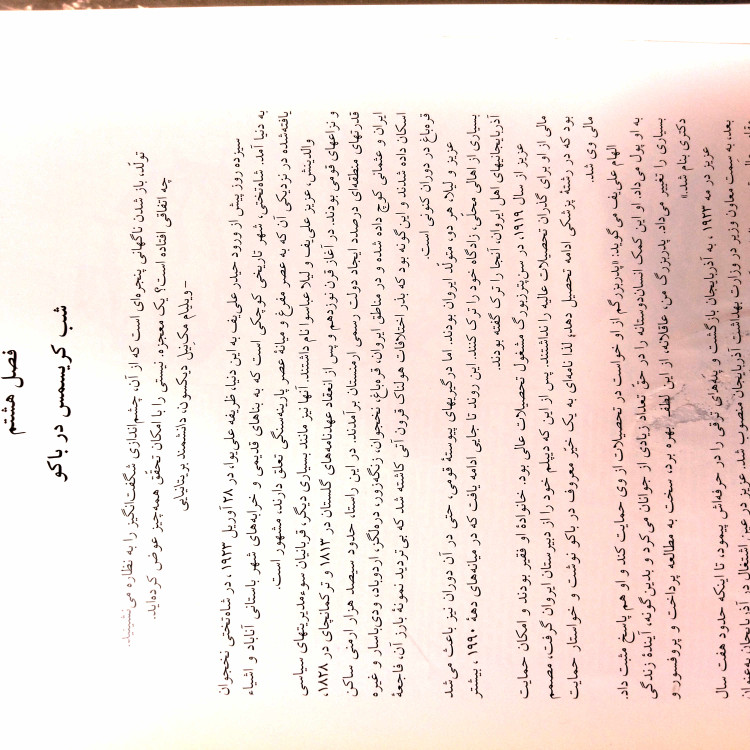 فصل هشتم
شب کریسمس در باکو
تولّد، باز شدن ناگهانی پنجره‌ای است که از آن، چشم‌اندازی شگفت‌انگیز را به نظاره می‌نشینید.
چه اتفاقی افتاده است؟ یک معجزه. نیستی را با امکان تحقّق همه‌چیز عوض کرده‌اید.
- ویلیام مک‌نیل دیکسون، دانشمند بریتانیایی
سیزده روز پیش از ورود حیدر علی‌یف به این دنیا، ظریفه علی‌یوا، در ۲۸ آوریل ۱۹۲۳، در شاه‌تختی نخجوان
به دنیا آمد. شاه‌تختی، شهر تاریخی کوچکی است که به بناهای قدیمی و خرابه‌های شهر باستانی آناباد و اشیاء
یافته‌شده در نزدیکی آن که به عصر مفرغ و میانهٔ عصر پارینه‌سنگی تعلق دارند، مشهور است.
والدینش، عزیز علی‌یف و لیلا عباسوا نام داشتند. آنها نیز مانند بسیاری دیگر، قربانیان سوءمدیریتهای سیاسی
و نزاعهای قومی بودند. در آغاز قرن نوزدهم و پس از انعقاد عهدنامه‌های گلستان در ۱۸۱۳ و ترکمانچای در ۱۸۲۸،
قدرتهای منطقه‌ای درصدد ایجاد دولت رسمی ارمنستان برآمدند. در این راستا، حدود سیصد هزار ارمنی ساکن
ایران و عثمانی کوچ داده شده و در مناطق ایروان، قره‌باغ، نخجوان، زنگه‌زور، دره‌لگز، اردوباد، ودی‌باسار و غیره
اسکان داده شدند و این‌گونه بود که بذر اختلافات هولناک قرون آتی کاشته شد که بی‌تردید نمونهٔ بارز آن، فاجعهٔ
قره‌باغ در دوران کنونی است.
عزیز و لیلا، هر دو، متولّد ایروان بودند. اما درگیریهای پیوستهٔ قومی، حتی در آن دوران نیز باعث می‌شد
بسیاری از اهالی محلّی، زادگاه خود را ترک کنند. این روند تا جایی ادامه یافت که در میانه‌های دههٔ ۱۹۹۰، بیشتر
آذربایجانیهای اهل ایروان، آنجا را ترک گفته بودند.
عزیز از سال ۱۹۱۹، در سن‌پترزبورگ مشغول تحصیلات عالی بود. خانوادهٔ او فقیر بودند و امکان حمایت
مالی از او برای گذران تحصیلات عالیه را نداشتند. پس از این که دیپلم خود را از دبیرستان ایروان گرفت، مصمم
بود که در رشتهٔ پزشکی ادامه تحصیل دهد. لذا نامه‌ای به یک خیّر معروف در باکو نوشت و خواستار حمایت
مالی وی شد.
الهام علی‌یف می‌گوید: «پدربزرگم از او خواست در تحصیلات از وی حمایت کند و او هم پاسخ مثبت داد.
به او پول می‌داد. او این کمک انسان‌دوستانه را در حق تعداد زیادی از جوانان می‌کرد و بدین‌گونه، آیندهٔ زندگی
بسیاری را تغییر می‌داد. پدربزرگ من، عاقلانه، از این لطف بهره برد، سخت به مطالعه پرداخت و پروفسور و
دکتری بنام شد.»
عزیز در مه ۱۹۲۳، به آذربایجان بازگشت و پله‌های ترقی را در حرفه‌اش پیمود، تا اینکه حدود هفت سال
بعد، به سمت معاون وزیر در وزارت بهداشت آذربایجان منصوب شد. عزیز در عین اشتغال در آذربایجان به‌عنوان